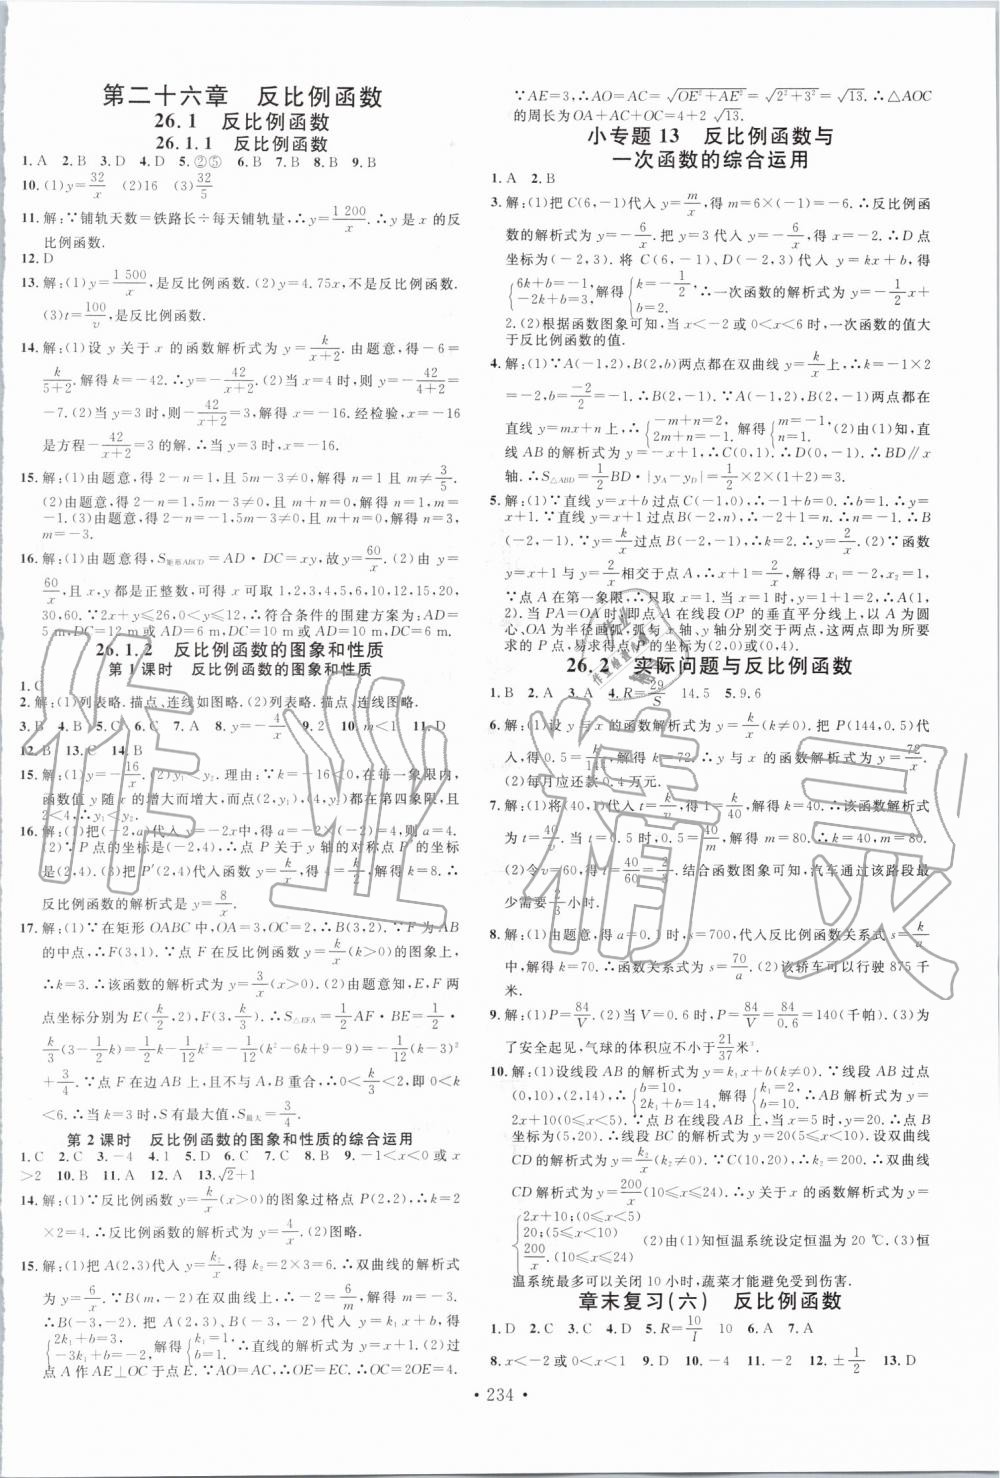 第二十六章 反比例函数
26.1 反比例函数
26.1.1 反比例函数
1.A 2.B 3.D 4.D 5.②⑤ 6.B 7.B 8.B 9.B
10.(1)y=32/x (2)16 (3)32/5
11.解:∵铺轨天数=铁路长÷每天铺轨量,∴y=1 200/x.∴y是x的反
比例函数.
12.D
13.解:(1)y=1 500/x,是反比例函数.(2)y=4.75x,不是反比例函数.
(3)t=100/v,是反比例函数.
14.解:(1)设y关于x的函数解析式为y=k/(x+2).由题意,得6=
k/(5+2).解得k=-42.∴y=-42/(x+2).(2)当x=4时,则y=-42/(4+2)=
-7.(2)当y=3时,则-42/(x+2)=3.解得x=-16.经检验,x=-16
是方程-42/(x+2)=3的解.∴当y=3时,x=-16.
15.解:(1)由题意,得2-n=1,且5m-3≠0,解得n=1且m≠3/5.
(2)由题意,得2-n=1,5m-3≠0,且m+n=0,解得n=1,m=
-1.(3)由题意,得2-n=-1,5m-3≠0,且m+n=0,解得n=3,
m=-3.
16.解:(1)由题意得,S矩形ABCD=AD·DC=xy,故y=60/x.(2)由y=
60/x,且x,y都是正整数,可得x可取1,2,3,4,5,6,10,12,15,20,
30,60.∵2x+y≤26,0<y≤12,∴符合条件的围建方案为:AD=
5 m,DC=12 m或AD=6 m,DC=10 m或AD=10 m,DC=6 m.
26.1.2 反比例函数的图象和性质
第1课时 反比例函数的图象和性质
1.C
2.解:(1)列表略.描点、连线如图略.(2)列表略.描点、连线图略.
3.B 4.B 5.C 6.C 7.A 8.y=-4/x 9.3 10.m<1 11.D
12.B 13.C 14.B
15.解:(1)y=-16/x.(2)y₁<y₂.理由:∵k=-16<0,∴在每一象限内,
函数值y随x的增大而增大,而点(2,y₁),(4,y₂)都在第四象限,且
2<4,∴y₁<y₂.
16.解:(1)把(-2,a)代入y=-2x中,得a=-2×(-2)=4.则a=4.
(2)∵P点的坐标是(-2,4),∴点P关于y轴的对称点P′的坐标是
(2,4).(3)把P′(2,4)代入函数y=k/x,得4=k/2,解得k=8.∴
反比例函数的解析式是y=8/x.
17.解:(1)∵在矩形OABC中,OA=3,OC=2,∴B(3,2).∵F为AB
的中点,∴F(3,1).∵点F在反比例函数y=k/x(k>0)的图象上,
∴k=3.∴该函数的解析式为y=3/x(x>0).(2)由题意知,E,F两
点坐标分别为E(k/2,2),F(3,k/3),∴S△EFA=1/2AF·BE=1/2×
k/3(3-1/2k)=1/2k-1/12k²=-1/12(k²-6k+9-9)=-1/12(k-3)²
+3/4.∵点F在边AB上,且不与A,B重合,∴0<k/3<2,即0<k
<6.∴当k=3时,S有最大值,S最大=3/4.
第2课时 反比例函数的图象和性质的综合运用
1.C 2.C 3.-4 4.1 5.D 6.D 7.C 8.B 9.-1<x<0或x
>2 10.B 11.A 12.A 13.√2+1
14.解:(1)∵反比例函数y=k/x(x>0)的图象过格点P(2,2),∴k=2
×2=4.∴反比例函数的解析式为y=4/x.(2)图略.
15.解:(1)把A(2,3)代入y=k₂/x,得k₂=2×3=6.∴双曲线的解析式
为y=6/x.∵B(m,-2)在双曲线y=6/x上,∴-2m=6.解得m=-3.
∴B(-3,-2).把A(2,3),B(-3,-2)代入y=k₁x+b,得
{2k₁+b=3,-3k₁+b=-2.解得{k₁=1,b=1.∴直线的解析式为y=x+1.(2)过
点A作AE⊥OC于点E.∵AO=AC,∴OE=CE,∴OC=2OE=4.
∵AE=3,∴AO=AC=√(OE²+AE²)=√(2²+3²)=√13.∴△AOC
的周长为OA+AC+OC=4+2√13.
小专题13 反比例函数与
一次函数的综合运用
1.A 2.B
3.解:(1)把C(6,-1)代入y=m/x,得m=6×(-1)=-6.∴反比例函
数的解析式为y=-6/x.把y=3代入y=-6/x,得x=-2.∴D点
坐标为(-2,3).将C(6,-1),D(-2,3)代入y=kx+b,得
{6k+b=-1,-2k+b=3,解得{k=-1/2,b=2.∴一次函数的解析式为y=-1/2x+
2.(2)根据函数图象可知,当x<-2或0<x<6时,一次函数的值大
于反比例函数的值.
4.解:(1)∵A(-1,2),B(2,b)两点都在双曲线y=k/x上,∴k=-1×2
=-2,b=-2/2=-1.∴B(2,-1).∵A(-1,2),B(2,-1)两点都在
直线y=mx+n上,∴{-m+n=2,2m+n=-1.解得{m=-1,n=1.∴k=-2,直
线AB的解析式为y=-x+1.(2)∴C(0,1).∴D(0,-1).∴BD∥x
轴.∴S△ABD=1/2BD·|yA-yD|=1/2×2×(1+2)=3.
5.解:(1)∵直线y=x+b过点C(-1,0),∴-1+b=0.∴b=1.∴y=
x+1.∵直线y=x+1过点B(-2,n),∴-2+1=n.∴n=-1.∴B
(-2,-1).∵y=k/x过点B(-2,-1),∴k=2.∴y=2/x.(2)∵函数
y=x+1与y=2/x相交于点A,∴x+1=2/x.解得x₁=1,x₂=-2.∵
点A在第一象限,∴只取x=1.当x=1时,y=x+1=2.∴A(1,
2).当PA=OA时,即点A在线段OP的垂直平分线上,以A为圆
心,OA为半径画弧,弧与x轴、y轴分别相交于两点,这两点为动点
P,易求得点P的坐标为(2,0)或(0,4).
26.2 实际问题与反比例函数
1.B 2.A 3.A 4.R=29/S 14.5 5.9.6
6.解:(1)设y与x的函数解析式为y=k/x(k≠0).把P(144,0.5)代
入,得0.5=k/144,解得k=72.∴y与x的函数解析式为y=72/x.
(2)每月应还款0.4万元.
7.解:(1)将(40,1)代入t=k/v,得1=k/40,解得k=40.∴该函数解析式
为t=40/v.当t=0.5时,0.5=40/m,解得m=80.∴k=40,m=80.
(2)令v=60,得t=40/60=2/3.结合函数图象可知,汽车通过该路段最
少需要2/3小时.
8.解:(1)由题意,得a=0.1时,s=700,代入反比例函数关系式s=k/a
中,解得k=70.∴函数关系式为s=70/a.(2)该轿车可以行驶875千
米.
9.解:(1)P=84/V.(2)当V=0.6时,P=84/V=84/0.6=140(千帕).(3)为
了安全起见,气球的体积应不小于21/37米³.
10.解:(1)设线段AB的解析式为y=k₁x+b(k≠0).∵线段AB过点
(0,10),(2,14),∴{b=10,2k₁+b=14.解得{k₁=2,b=10.∴AB解析式为y=
2x+10(0≤x<5).∵B在线段AB上,当x=5时,y=20.∴点B
坐标为(5,20).∴线段BC的解析式为y=20(5≤x<10).设双曲线
CD的解析式为y=k₂/x(k₂≠0).∵C(10,20),∴k₂=200.∴双曲线
CD解析式为y=200/x(10≤x≤24).∴y关于x的函数解析式为y=
{2x+10;(0≤x<5)
20;(5≤x<10)
200/x.(10≤x≤24)
(2)由(1)知恒温系统设定恒温为20 ℃.(3)恒
温系统最多可以关闭10小时,蔬菜才能避免受到伤害.
章末复习(六) 反比例函数
1.D 2.C 3.C 4.D 5.R=10/I 10 6.A 7.A
8.x<-2或0<x<1 9.D 10.-4 11.-2 12.±1/2 13.D
·234·
作业精灵